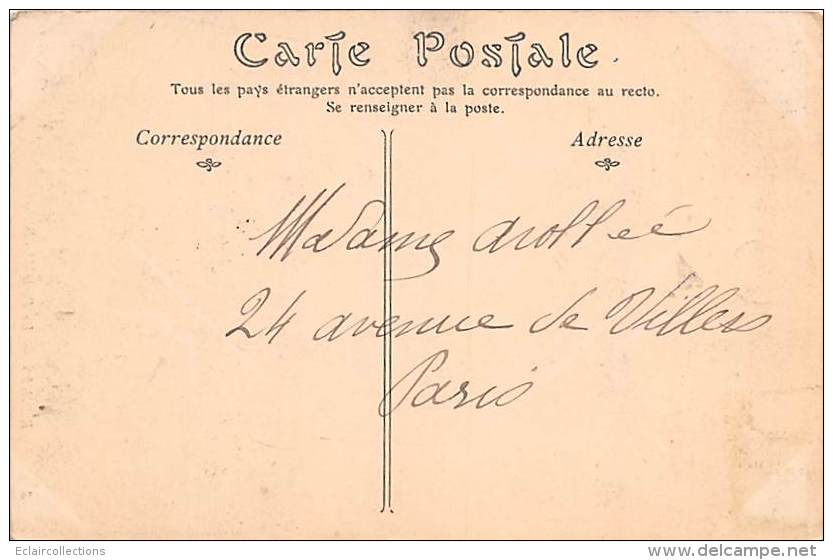 Carte Postale.
Tous les pays étrangers n'acceptent pas la correspondance au recto.
Se renseigner à la poste.
Correspondance
Adresse
Madame
24 avenue de Villers
Paris
Eclaircollections
www.delcampe.net